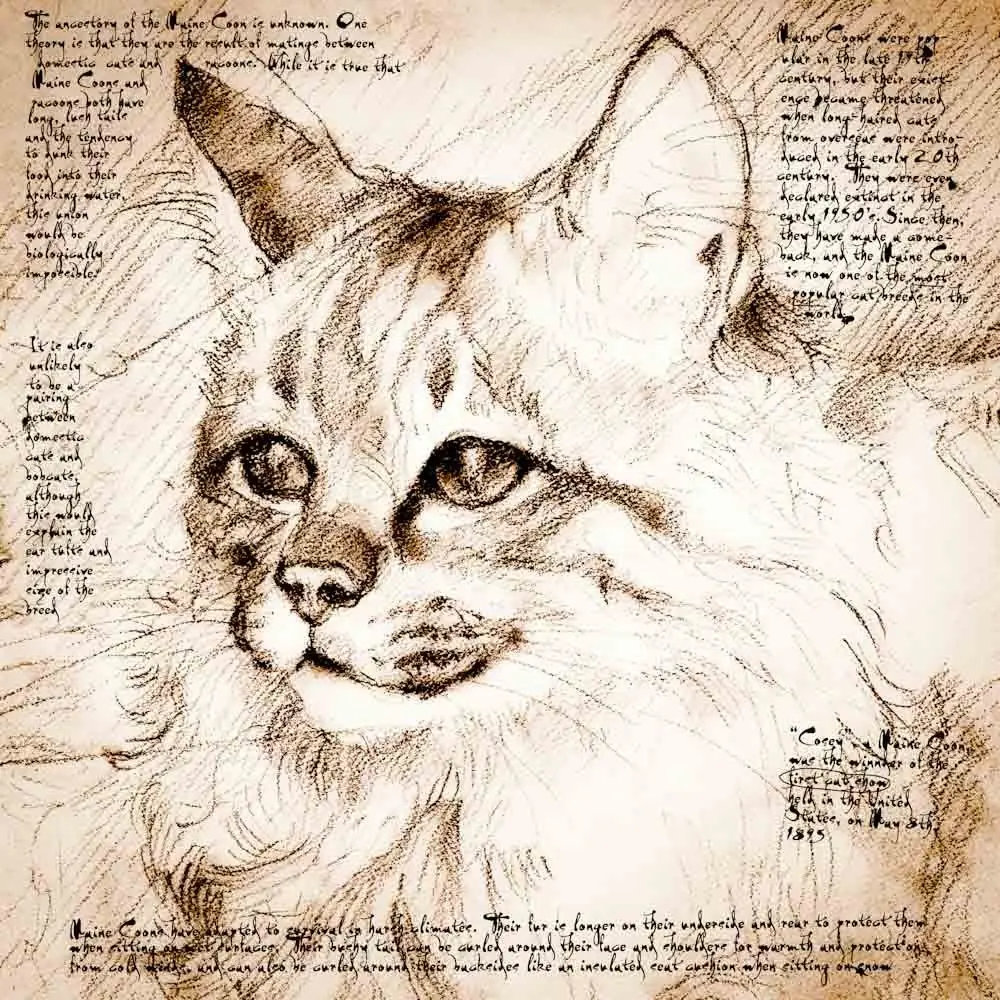 The ancestory of the Maine Coon is unknown. One
theory is that they are the result of matings between
domestic cats and racoons. While it is true that
Maine Coons and
racoons both have
long, lush tails
and the tendency
to dunk their
food into their
drinking water,
this union
would be
biologically
impossible.
It is also
unlikely
to be a
pairing
between
domestic
cats and
bobcats,
although
this would
explain the
ear tufts and
impressive
size of the
breed
Maine Coons were pop-
ular in the late 19th
century, but their exist-
ence became threatened
when long-haired cats
from overseas were intro-
duced in the early 20th
century. They were even
declared extinct in the
early 1950's. Since then,
they have made a come-
back, and the Maine Coon
is now one of the most
popular cat breeds in the
world.
"Cosey", a Maine Coon,
was the winnder of the
first cat show
held in the United
States, on May 8th,
1895
Maine Coons have adapted to survival in harsh climates. Their fur is longer on their underside and rear to protect them
when sitting on wet surfaces. Their bushy tail can be curled around their face and shoulders for warmth and protection
from cold winds, and can also be curled around their backsides like an insulated seat cushion when sitting on snow